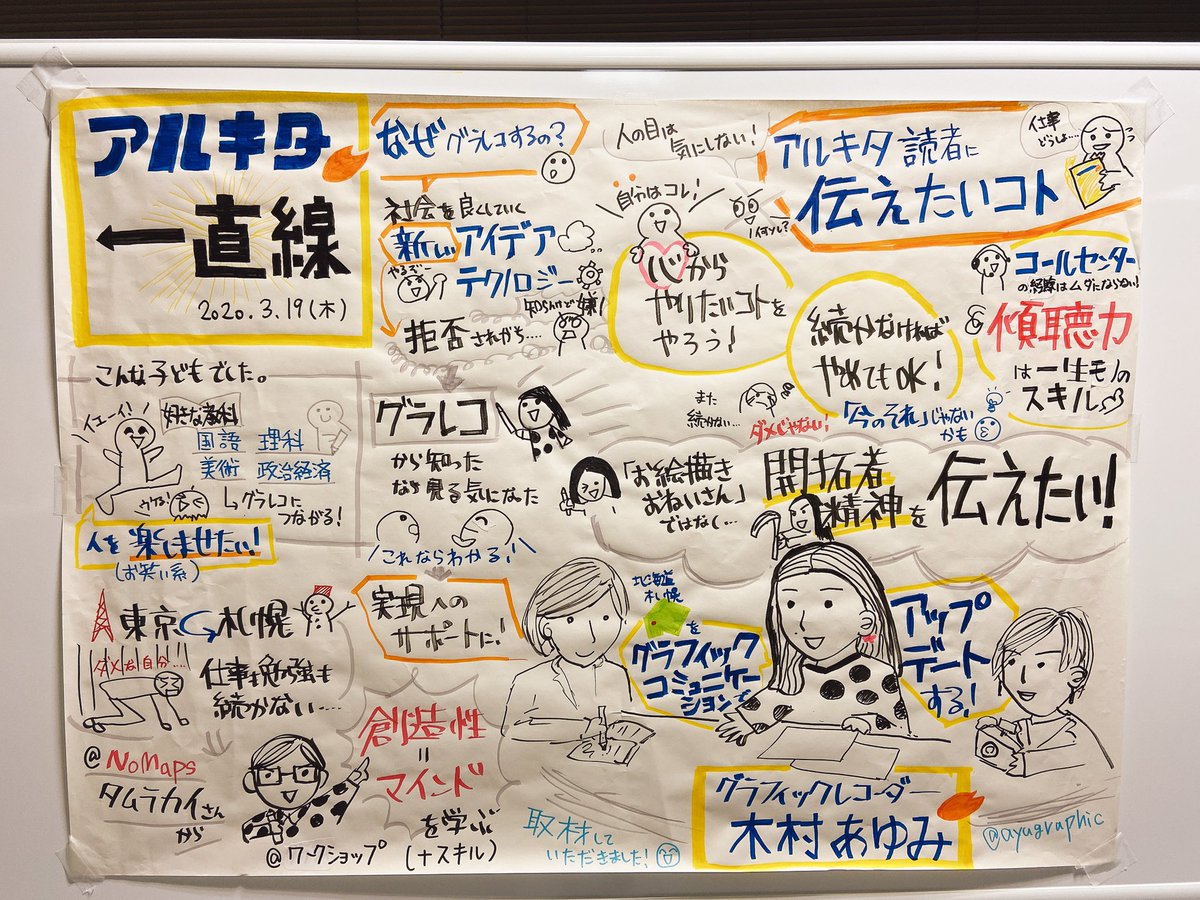 アルキタ
一直線
2020.3.19(木)
こんな子どもでした。
イエーイ!
好きな教科
国語 理科
美術 政治経済
ウケる!
↳グラレコに
つながる!
人を楽しませたい!
(お笑い系)
東京 札幌
ダメな自分…
仕事も勉強も
続かない…
@NoMaps
タムラカイさん
から
なぜグラレコするの?
社会を良くしていく
新しいアイデア
テクノロジー
やるぞー
知らんけど嫌!
拒否されがち…
グラレコ
から知った
なら見る気になった
これならわかる!
実現への
サポートに!
創造性
=
マインド
を学ぶ
@ワークショップ (+スキル)
人の目は
気にしない!
自分はコレ!
心から
やりたいコトを
やろう!
アルキタ読者に
伝えたいコト
仕事
どうしよ…
コールセンター
の経験はムダにならない!
傾聴力
は一生モノの
スキル
続かなければ
やめてもOK!
また
続かない…
ダメじゃない!
「今のそれ」じゃない
かも
「お絵描き
おねいさん」
ではなく…
開拓者
精神を
伝えたい!
北海道
札幌
を
グラフィック
コミュニケー
ションで
アップ
デート
する!
取材して
いただきました!
グラフィックレコーダー
木村あゆみ
@ayugraphic